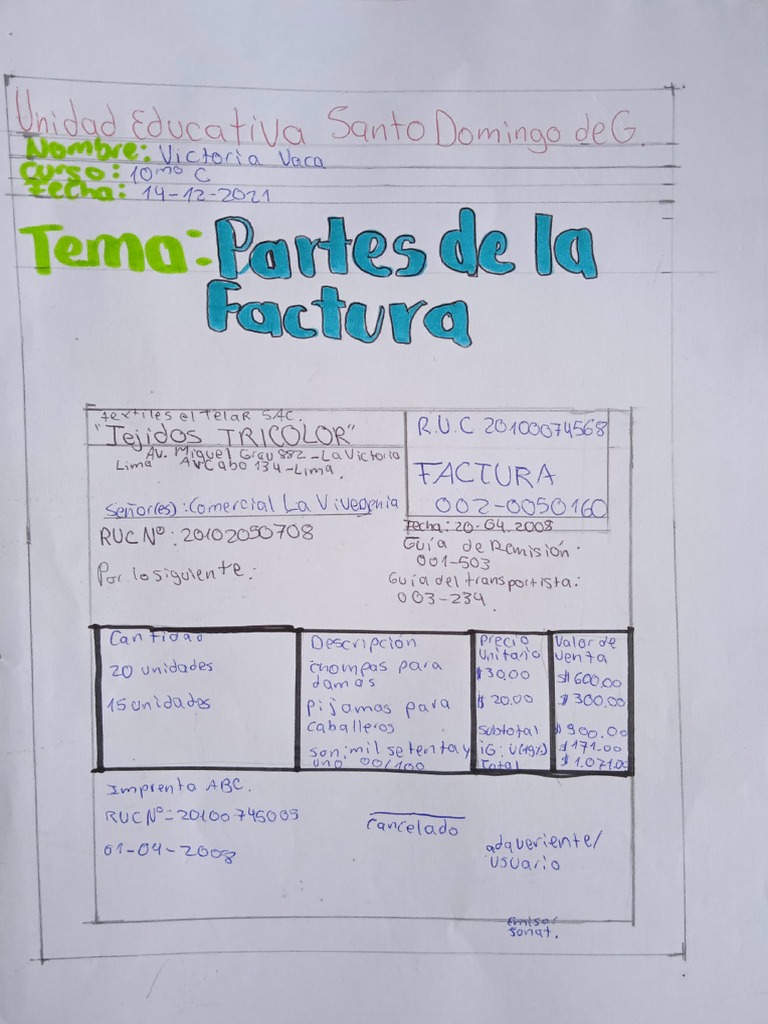 Unidad Educativa Santo Domingo de G.
Nombre: Victoria Vaca
Curso: 10mo C
Fecha: 14-12-2021
Tema: Partes de la
Factura
textiles el Telar SAC.
"Tejidos TRICOLOR"
Av. Miguel Grau 882 - La Victoria
Lima Av Cabo 134 - Lima.
R.U.C 20100074568
FACTURA
002-0050160
Señor(es): Comercial La Vivegenia
RUC Nº: 20102050708
Por lo siguiente:
Fecha: 20-04.2008
Guía de Remisión:
001-503
Guía del transportista:
003-234.
Cantidad Descripción Precio Unitario Valor de venta
20 unidades chompas para damas $30.00 $600.00
15 unidades Pijamas para caballeros $20.00 $300.00
Subtotal $900.00
son: mil setenta y iG: V(19%) $171.00
uno 00/100 Total $1.071.00
Imprenta ABC.
RUC Nº = 20100745009
01-04-2008
Cancelado
adqueriente/
usuario
Emisor
Sonat.